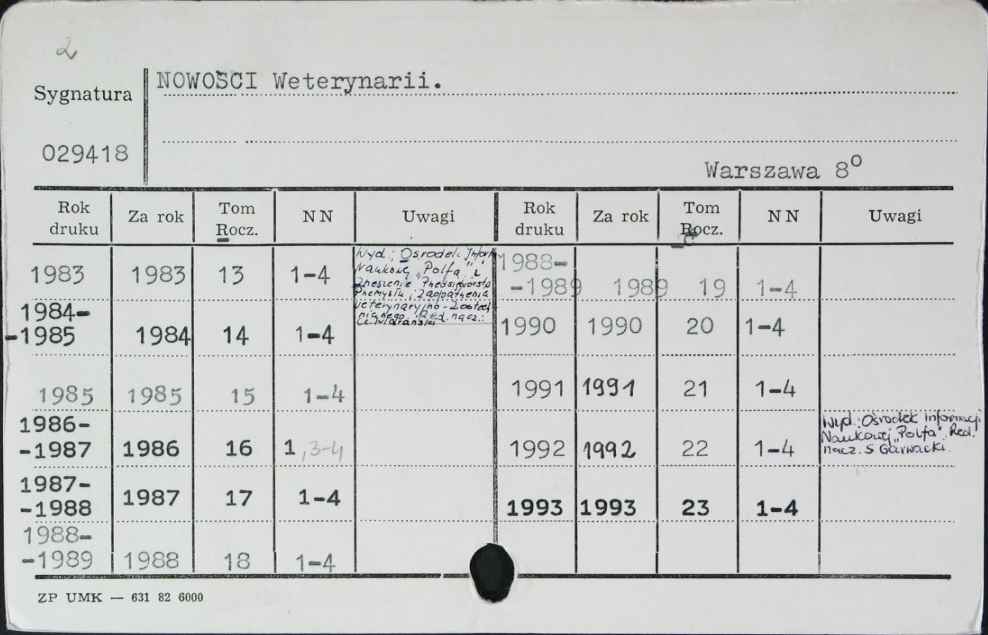 2
Sygnatura
NOWOŚCI Weterynarii.
029418
Warszawa 8o
Rok druku Za rok Tom Rocz. NN Uwagi Rok druku Za rok Tom Rocz. NN Uwagi
1983 1983 13 1-4
Wyd.: Ośrodek Inform.
Naukowej "Polfa" i
Zrzeszenie Przedsiębiorstw
Przemysłu, Zaopatrzenia
1984-
-1985 1984 14 1-4
1985 1985 15 1-4
1986-
-1987 1986 16 1,3-4
1987-
-1988 1987 17 1-4
1988-
-1989 1988 18 1-4
1988-
-1989 1989 19 1-4
1990 1990 20 1-4
1991 1991 21 1-4
1992 1992 22 1-4
Wyd.: Ośrodek Informacji
Naukowej "Polfa". Red.
nacz. S Garwacki.
1993 1993 23 1-4
ZP UMK — 631 82 6000